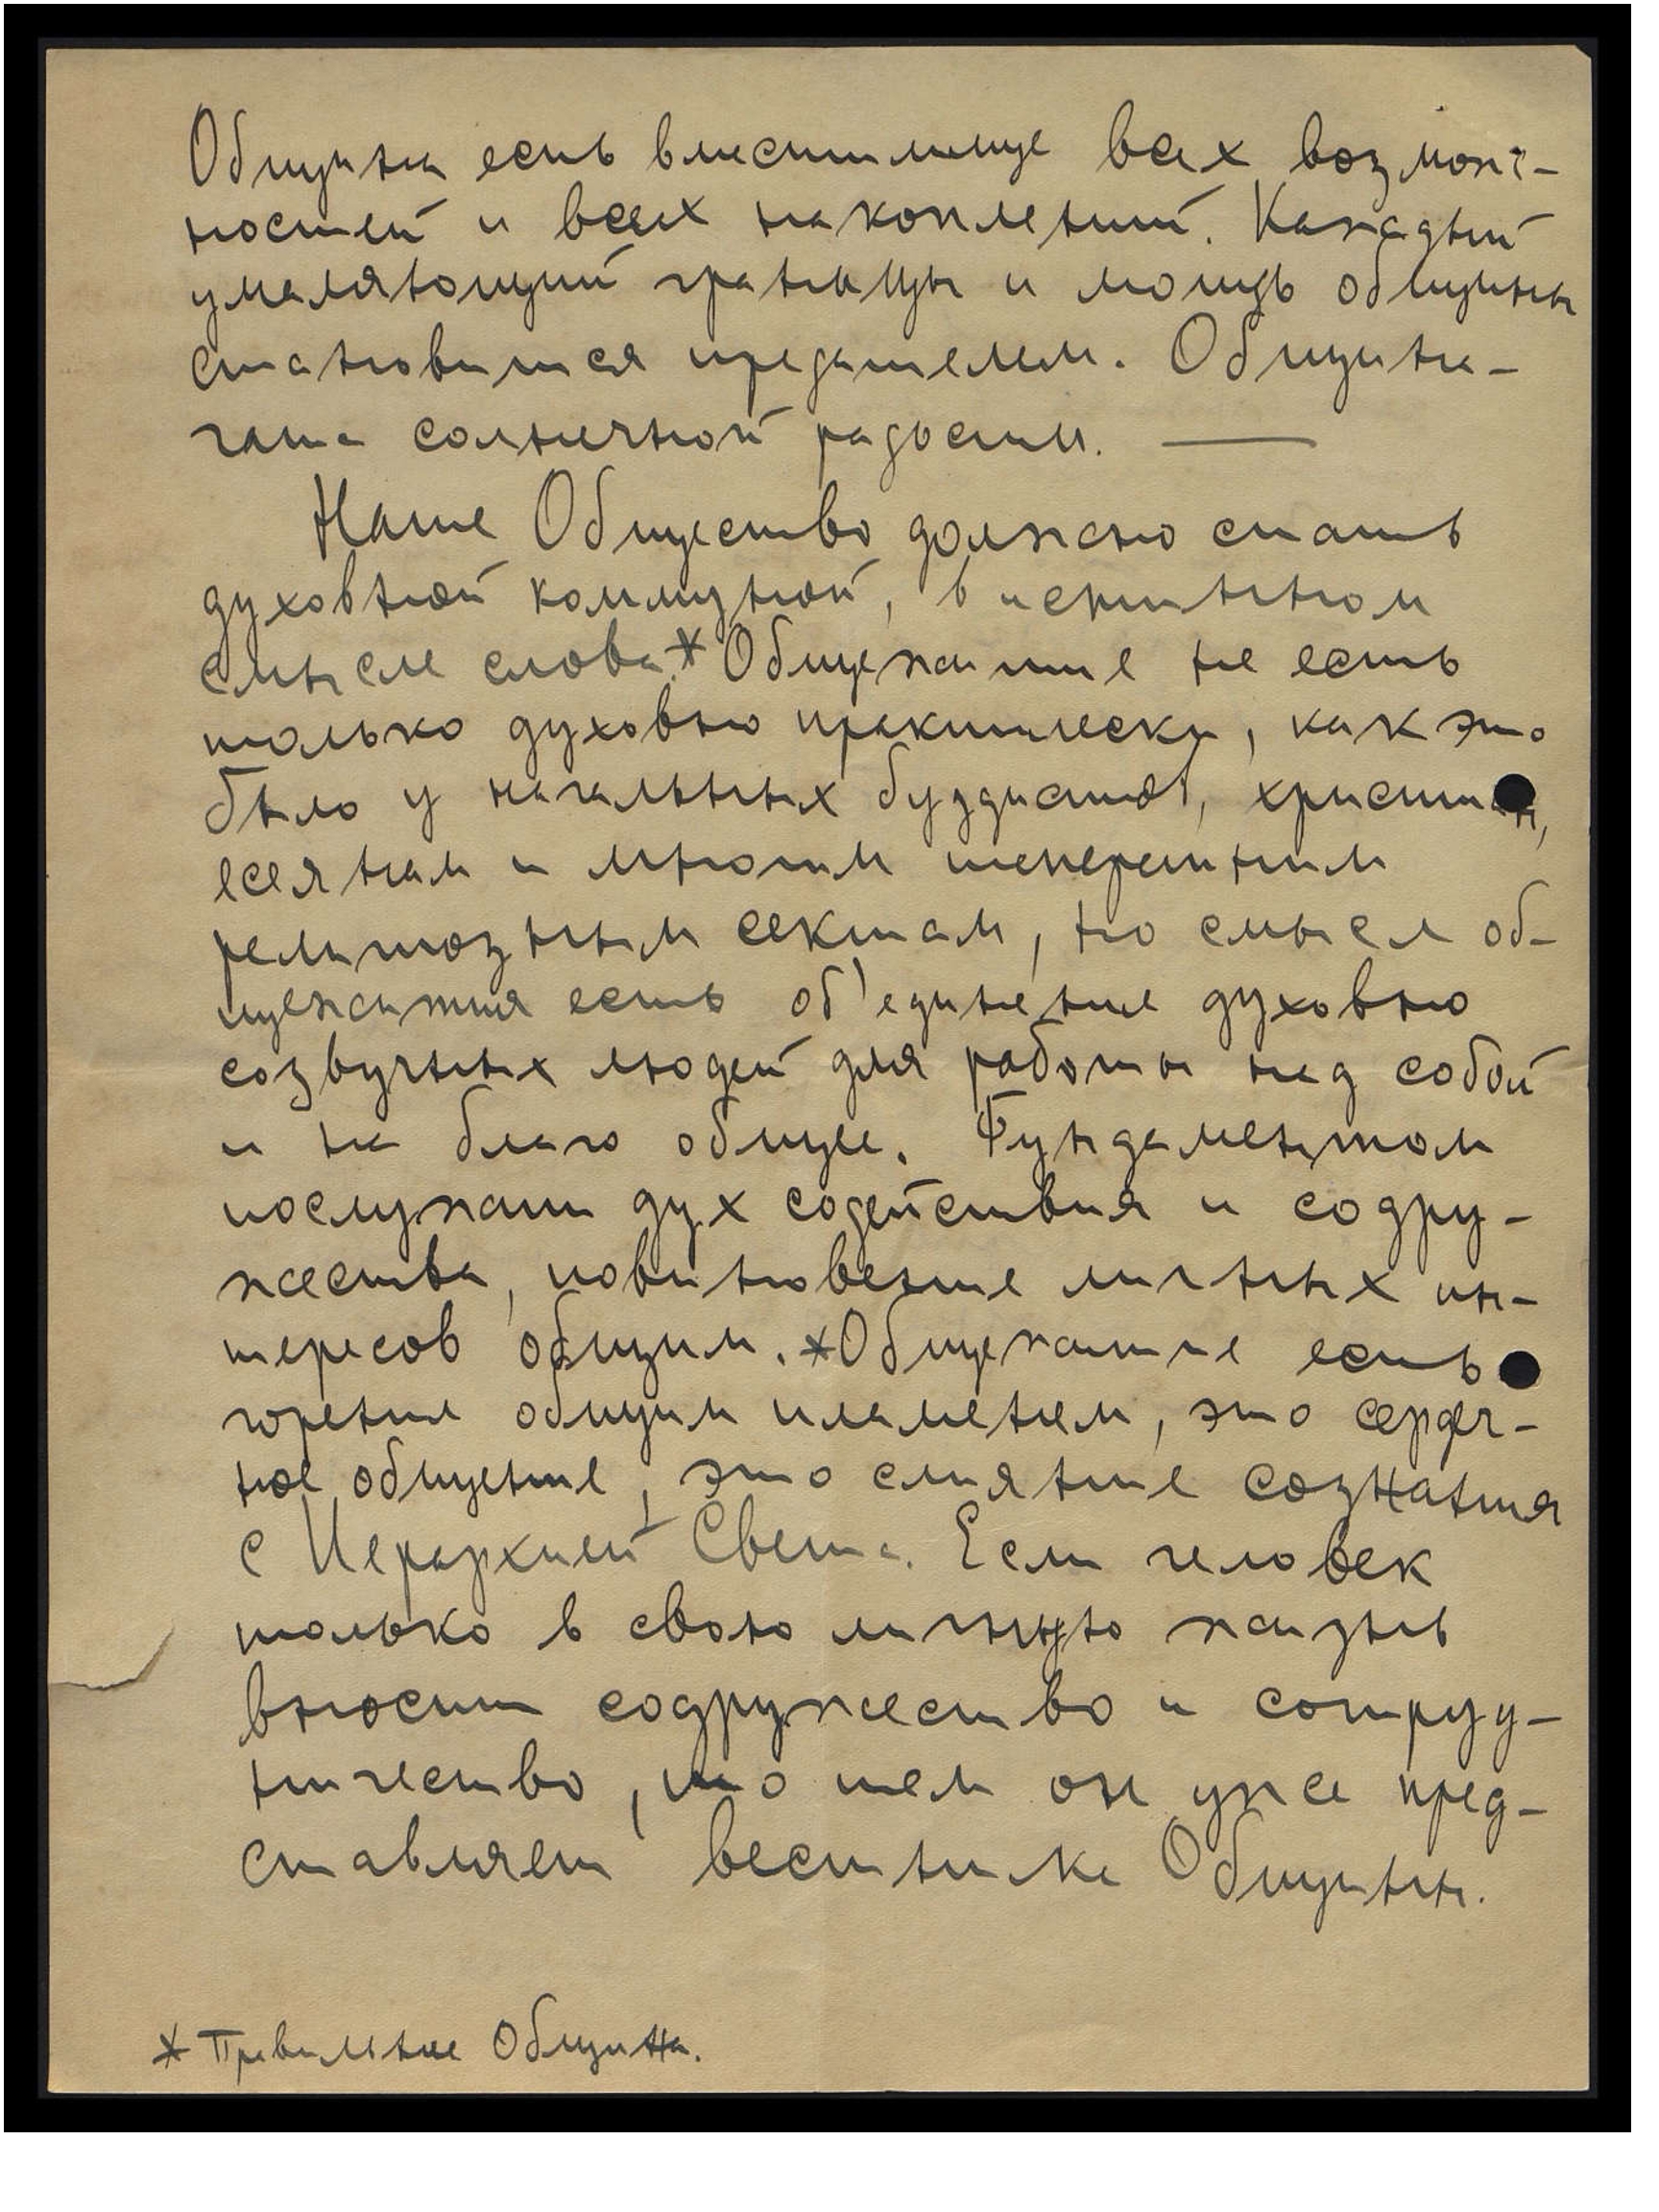 Община есть вместилище всех возмож-
ностей и всех накоплений. Каждый
умаляющий границы и мощь общины
становится предателем. Община-
чаша солнечной радости. —
Наше Общество должно стать
духовной коммуной, в истинном
смысле слова.* Общежитие не есть
только духовно практически, как это
было у начальных буддистов, христиан,
есеянам и многим теперешним
религиозным сектам, но смысл об-
щежития есть об'единение духовно
созвучных людей для работы над собой
и на благо общее. Фундаментом
послужат дух содействия и содру-
жества, повиновение личных ин-
тересов общим. *Общежитие есть
горение общим пламенем, это сердеч-
ное общение, это слияние сознания
с Иерархией Света. Если человек
только в свою личную жизнь
вносит содружество и сотруд-
ничество, то тем он уже пред-
ставляет вестника Общины.
* Правильнее Община.